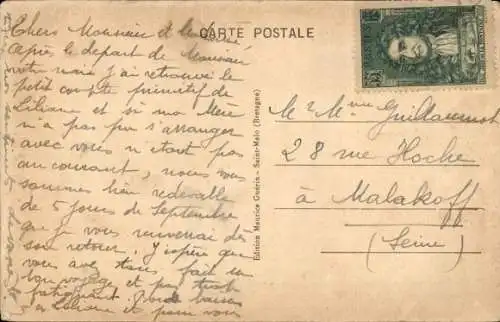 CARTE POSTALE
Chers Monsieur et
Après le départ de
votre mari j'ai retrouvé le
petit compte primitif de
Liliane et si ma Mère
n'a pas pu s'arranger
avec vous n'étant pas
au courant, nous vous
sommes bien redevable
de 5 jours de Septembre
que je vous renverrai dès
son retour. J'espère que
vous avez tous fait un
bon voyage et pas trop
fatiguant. Bons baisers
à Liliane et pour vous
Edition Maurice Guérin - Saint-Malo (Bretagne)
M. Mme Guillaumot
28 rue Hoche
à Malakoff
(Seine)